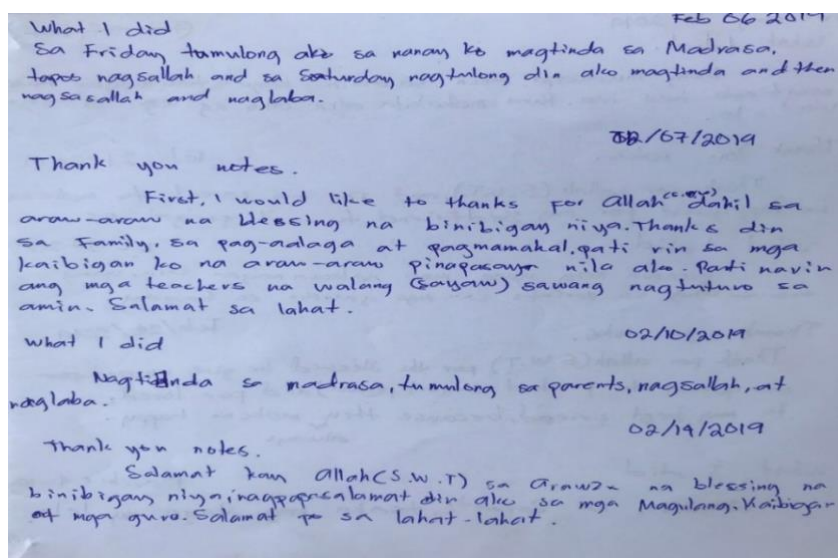 What I did
Feb 06 2019
Sa Friday tumulong ako sa nanay ko magtinda sa Madrasa,
tapos nagsallah and sa Saturday nagtulong din ako magtinda and then
nagsasallah and naglaba.
02/07/2019
Thank you notes.
First, I would like to thanks for Allah (s.w.t) dahil sa
araw-araw na blessing na binibigay niya. Thanks din
sa Family, sa pag-aalaga at pagmamahal, pati rin sa mga
kaibigan ko na araw-araw pinapasaya nila ako. Pati narin
ang mga teachers na walang (sayaw) sawang nagtuturo sa
amin. Salamat sa lahat.
02/10/2019
what I did
Nagtinda sa madrasa, tumulong sa parents, nagsallah, at
naglaba.
02/14/2019
Thank you notes.
Salamat kay Allah (S.W.T) sa na blessing na
binibigay niya, nagpapasalamat din ako sa mga Magulang. Kaibigan
at mga guro. Salamat po sa lahat-lahat.